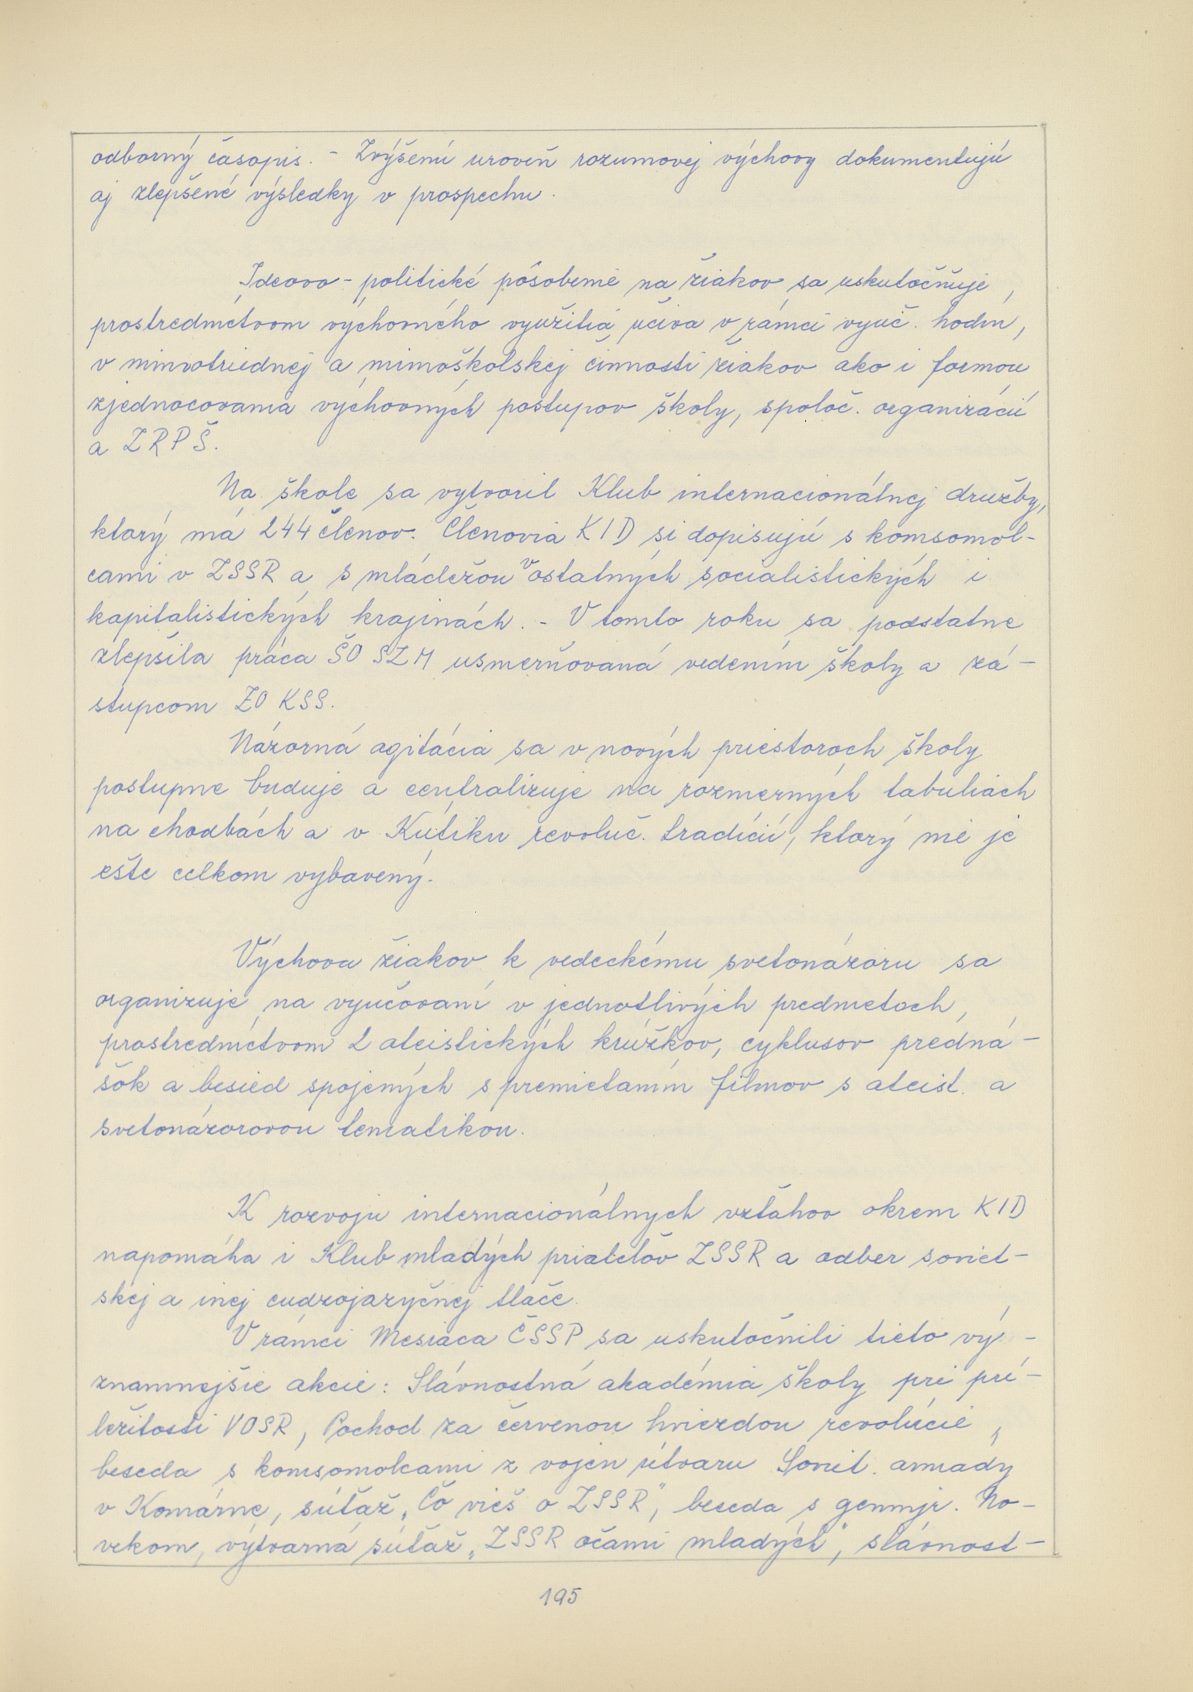 odborný časopis. - Zvýšenú uroveň rozumovej výchovy dokumentujú
aj zlepšené výsledky v prospechu.
Ideovo - politické pôsobenie na žiakov sa uskutočňuje
prostredníctvom výchovného využitia učiva v rámci vyuč. hodín,
v mimotriednej a mimoškolskej činnosti žiakov ako i formou
zjednocovania výchovných postupov školy, spoloč. organizácií
a ZRPŠ.
Na škole sa vytvoril Klub internacionálnej družby,
ktorý má 244 členov. Členovia KID si dopisujú s komsomol-
cami v ZSSR a s mládežou v ostatných socialistických i
kapitalistických krajinách. - V tomto roku sa podstatne
zlepšila práca ŠO SZM usmerňovaná vedením školy a zá-
stupcom ZO KSS.
Názorná agitácia sa v nových priestoroch školy
postupne buduje a centralizuje na rozmerných tabuliach
na chodbách a v Kútiku revoluč. tradícií, ktorý nie je
ešte celkom vybavený.
Výchova žiakov k vedeckému svetonázoru sa
organizuje na vyučovaní v jednotlivých predmetoch,
prostredníctvom 2 ateistických krúžkov, cyklusov predná-
šok a besied spojených s premietaním filmov s ateist. a
svetonázorovou tematikou.
K rozvoju internacionálnych vzťahov okrem KID
napomáha i Klub mladých priateľov ZSSR a odber soviet-
skej a inej cudzojazyčnej tlače.
V rámci Mesiaca ČSSP sa uskutočnili tieto vý-
znamnejšie akcie: Slávnostná akadémia školy pri prí-
ležitosti VOSR, Pochod za červenou hviezdou revolúcie,
beseda s komsomolcami z vojen útvaru Soviet. armády
v Komárne, súťaž „Čo vieš o ZSSR", beseda s genmjr. No-
vekom, výtvarná súťaž „ZSSR očami mladých", slávnost-
195